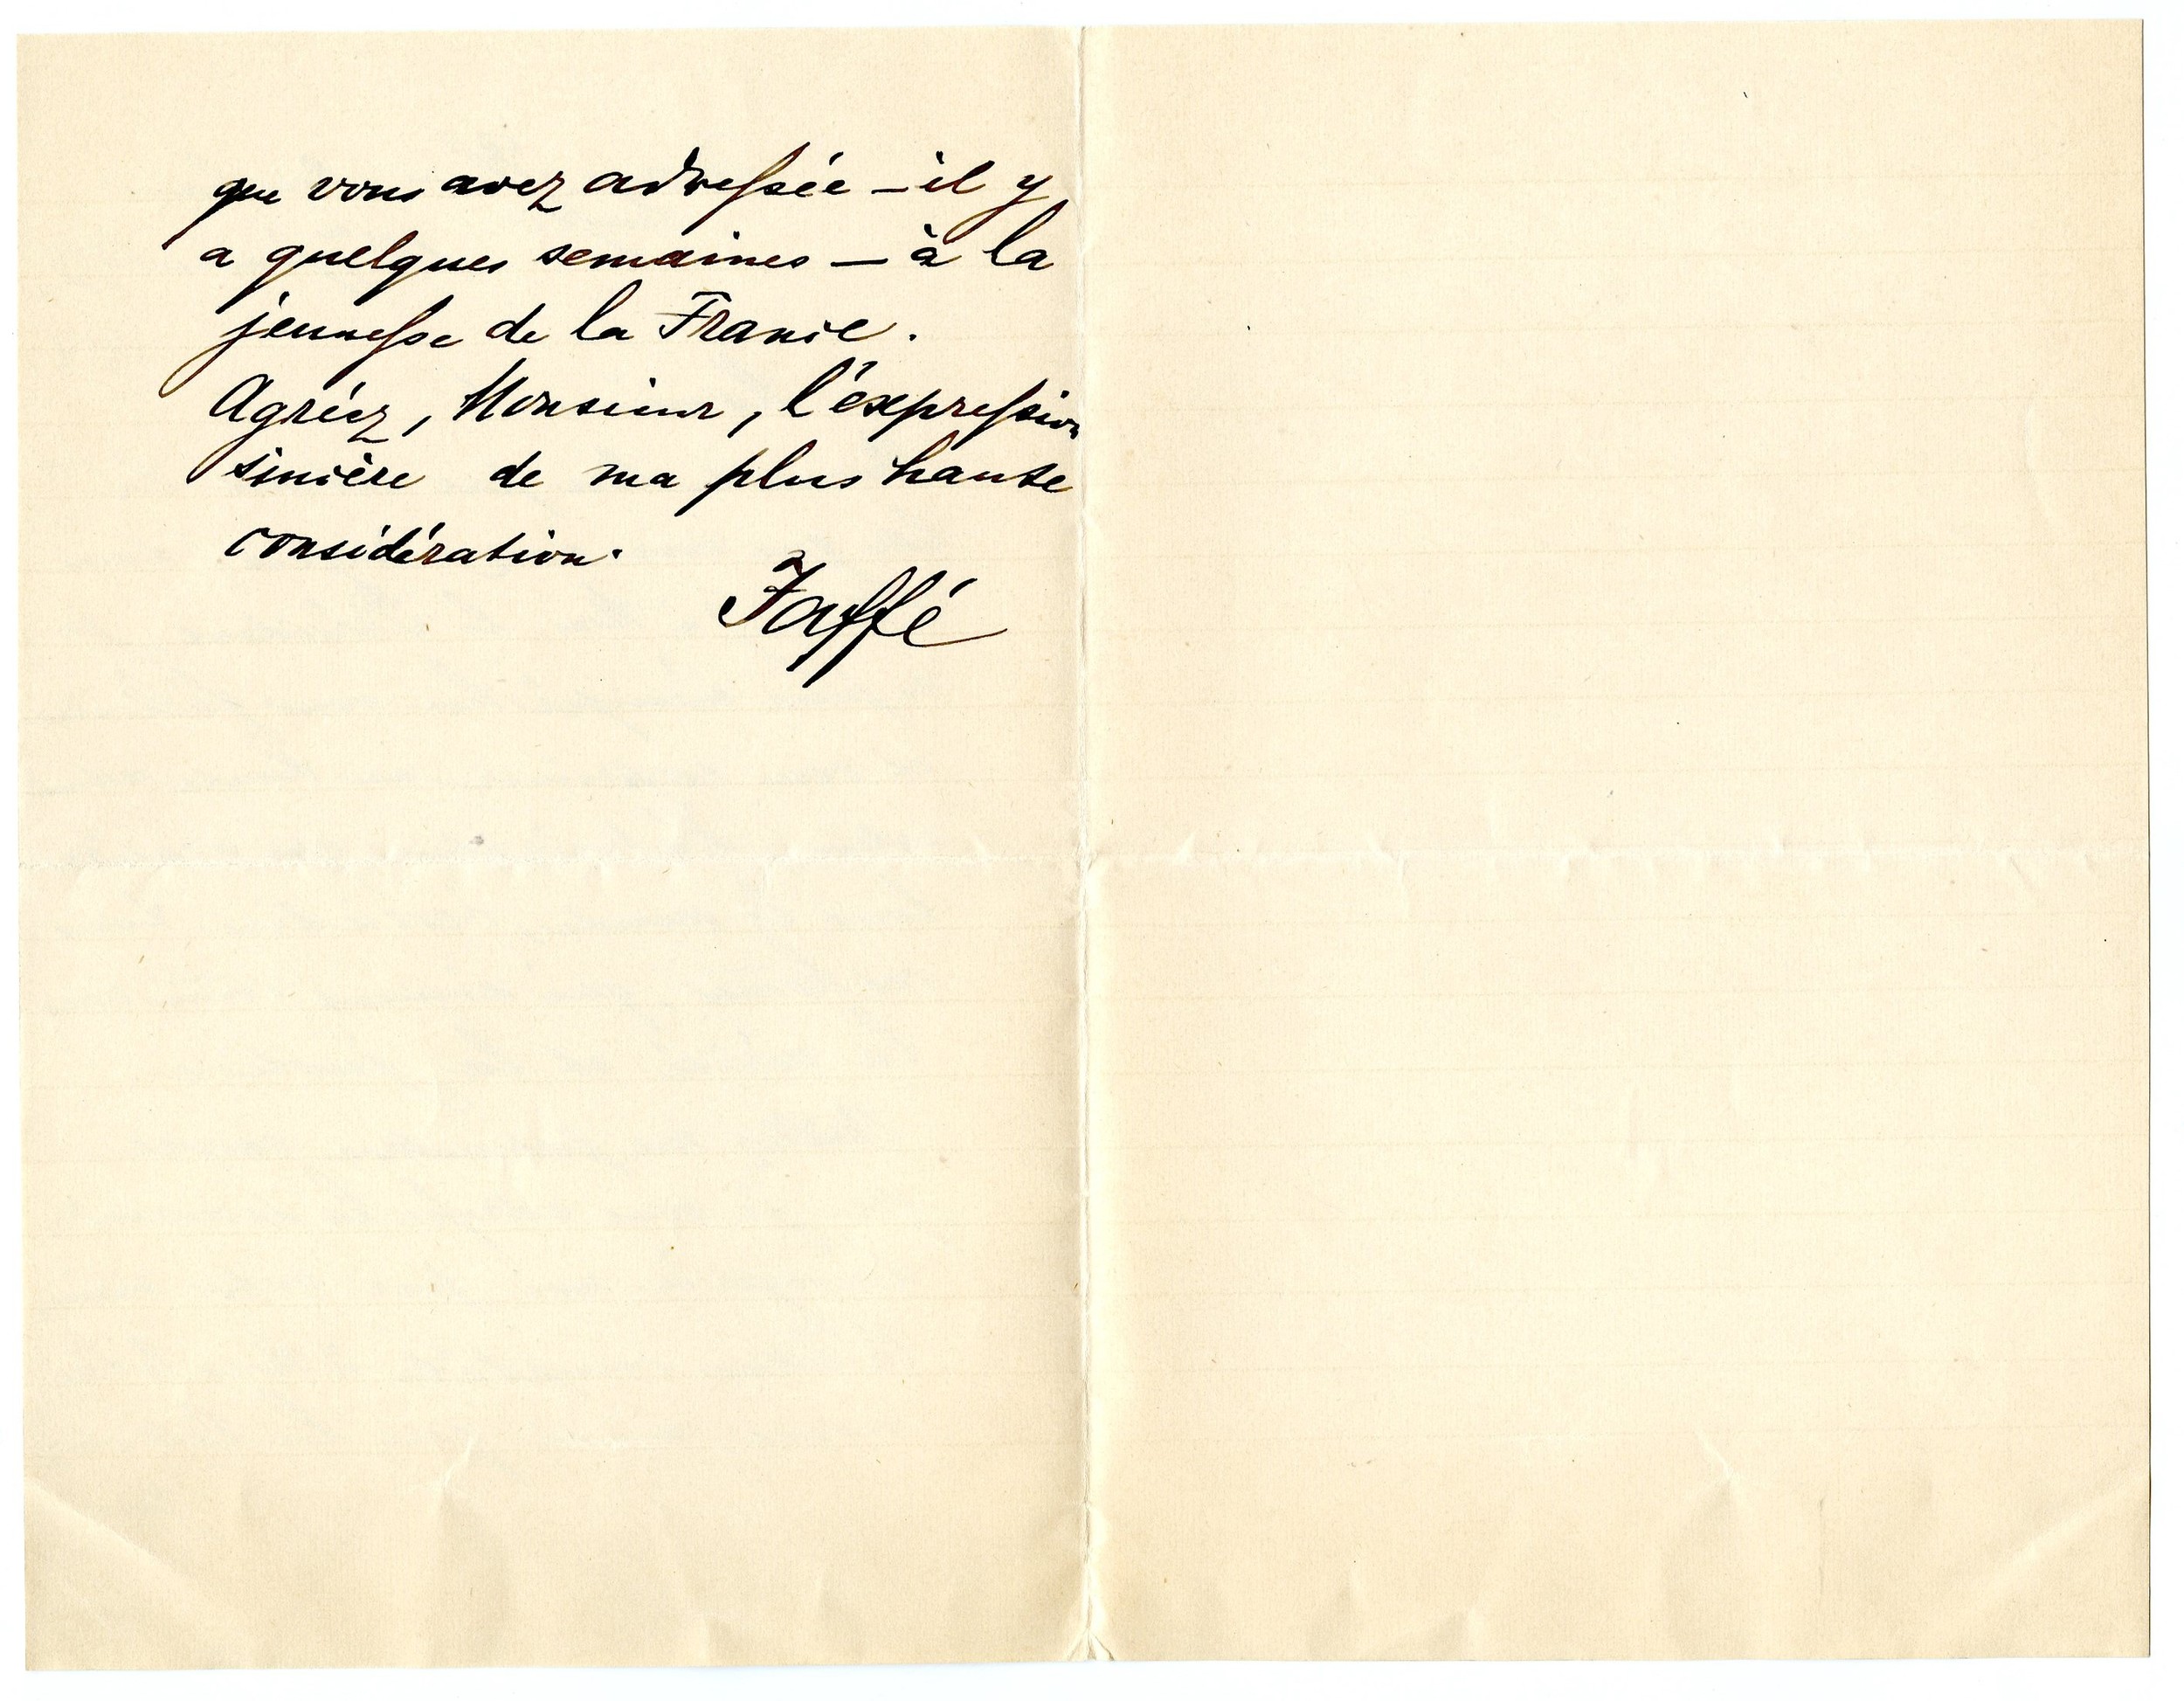 que vous avez adressée – il y
a quelques semaines – à la
jeunesse de la France.
Agréez, Monsieur, l'éxpression
sincère de ma plus haute
considération.
Jaffé